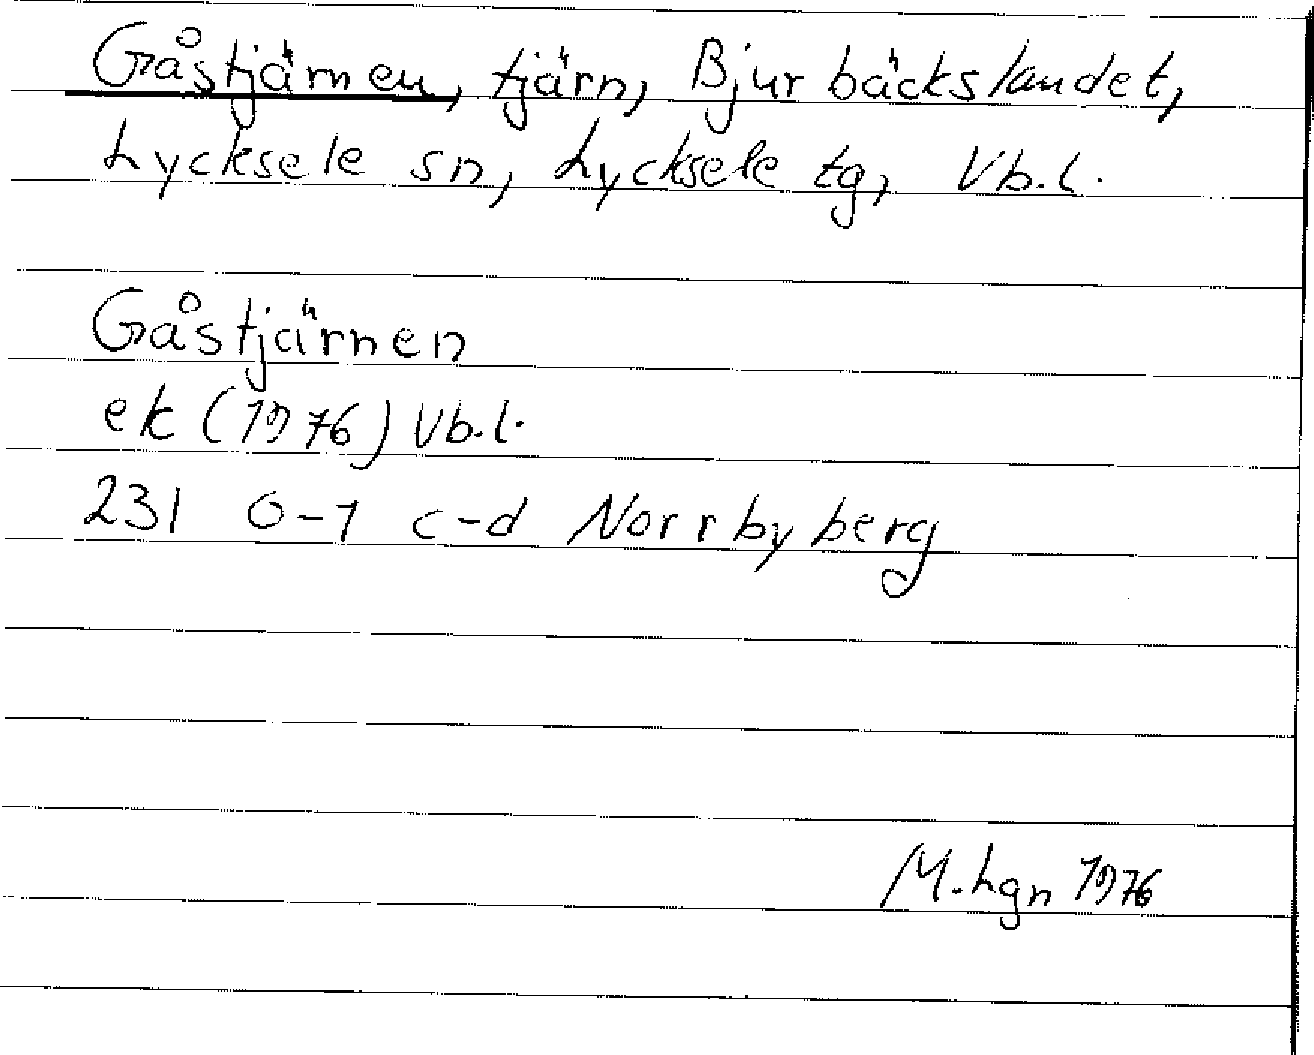 Gåstjärnen, tjärn, Bjurbäckslandet,
Lycksele sn, Lycksele tg, Vb.l.
Gåstjärnen
ek (1976) Vb.l.
231 0-1 c-d Norrbyberg
M. Lgn 1976